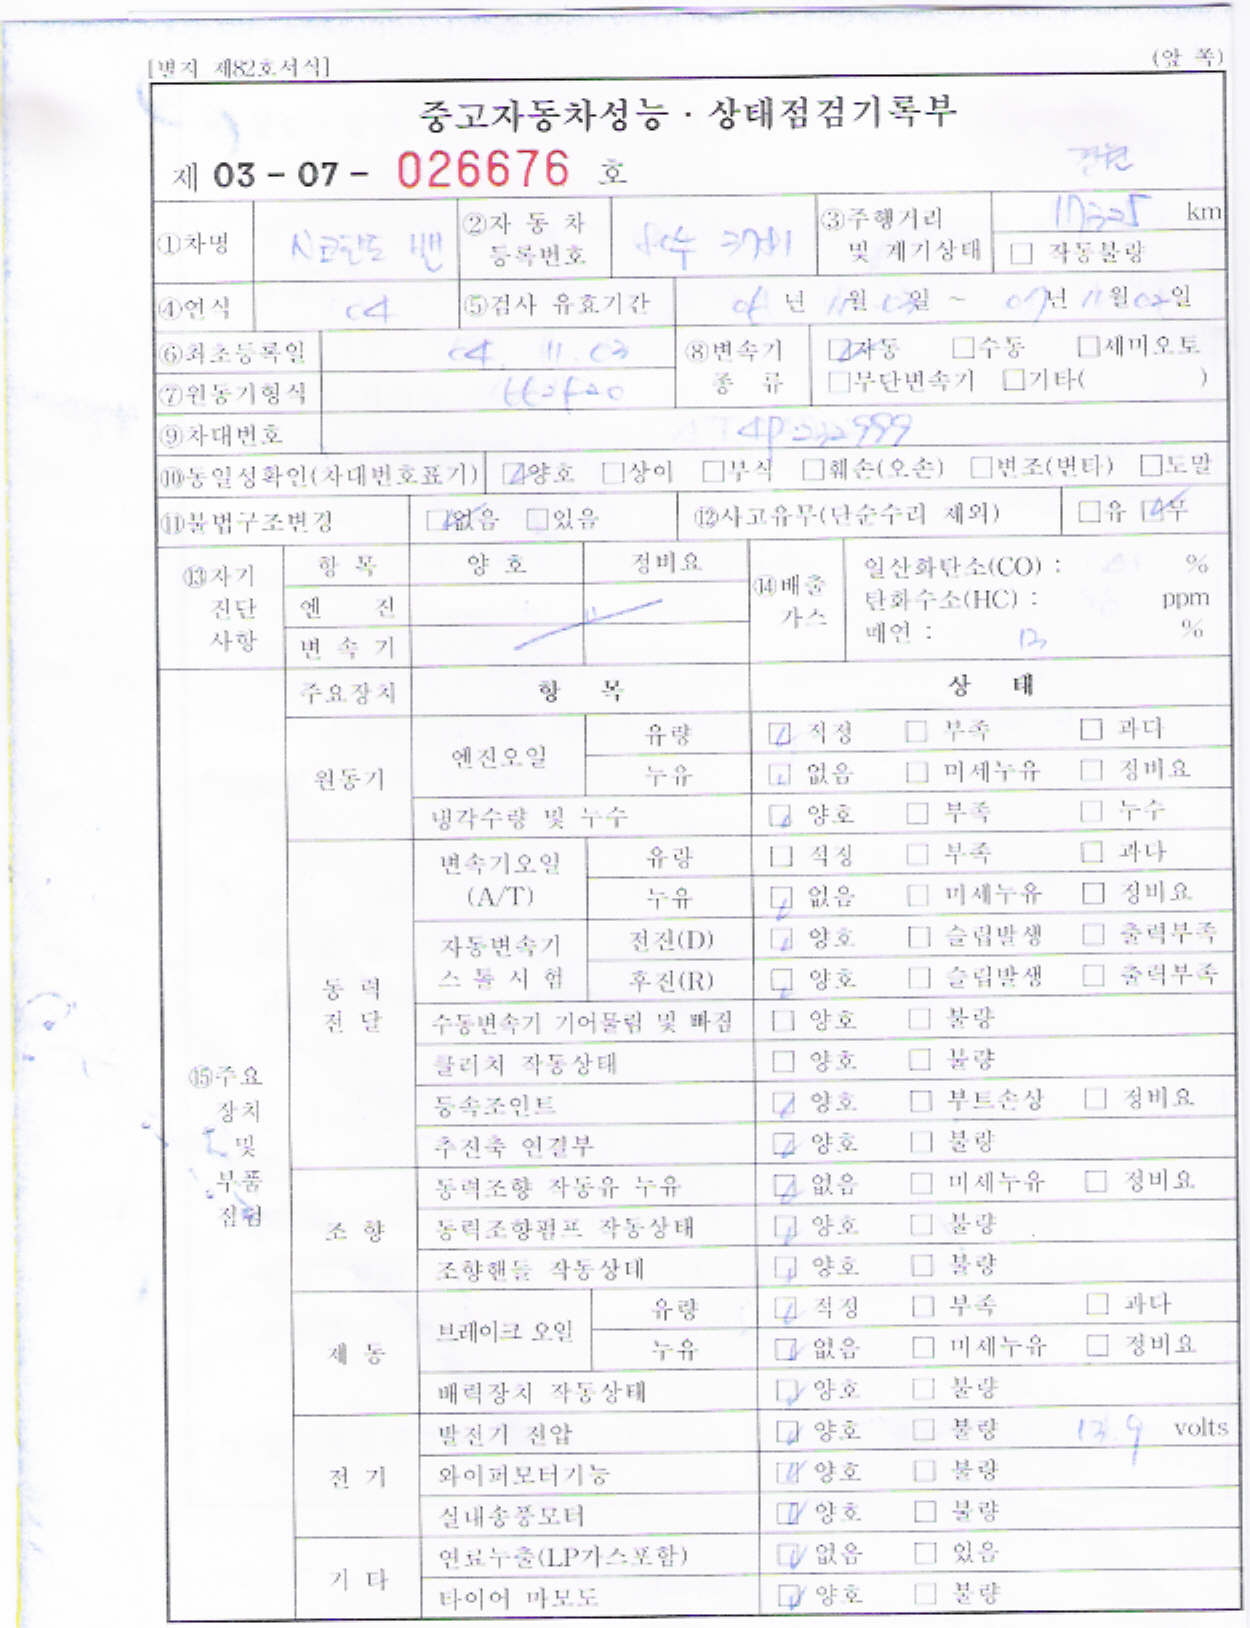 [별지 제82호서식]
(앞 쪽)
중고자동차성능 · 상태점검기록부
제 03 - 07 - 026676 호
①차명 N코란도 밴 ②자 동 차 등록번호 ③주행거리 및 계기상태 km
□ 작동불량
④연식 04 ⑤검사 유효기간 년 11월 03일 ~ 07년 11월 02일
⑥최초등록일 04. 11. 03 ⑧변속기 종 류 □자동 □수동 □세미오토
⑦원동기형식 □무단변속기 □기타( )
⑨차대번호 4P 232999
⑩동일성확인(차대번호표기) □양호 □상이 □부식 □훼손(오손) □변조(변타) □도말
⑪불법구조변경 □없음 □있음 ⑫사고유무(단순수리 제외) □유 □무
⑬자기 진단 사항 항 목 양 호 정비요 ⑭배출 가스 일산화탄소(CO) : %
엔 진 탄화수소(HC) : ppm
변 속 기 매연 : %
주요장치 항 목 상 태
⑮주요 장치 및 부품 점검
원동기 엔진오일 유량 □ 적정 □ 부족 □ 과다
누유 □ 없음 □ 미세누유 □ 정비요
냉각수량 및 누수 □ 양호 □ 부족 □ 누수
동 력 전 달 변속기오일 (A/T) 유량 □ 적정 □ 부족 □ 과다
누유 □ 없음 □ 미세누유 □ 정비요
자동변속기 스 톨 시 험 전진(D) □ 양호 □ 슬립발생 □ 출력부족
후진(R) □ 양호 □ 슬립발생 □ 출력부족
수동변속기 기어물림 및 빠짐 □ 양호 □ 불량
클러치 작동상태 □ 양호 □ 불량
등속조인트 □ 양호 □ 부트손상 □ 정비요
추진축 연결부 □ 양호 □ 불량
조 향 동력조향 작동유 누유 □ 없음 □ 미세누유 □ 정비요
동력조향펌프 작동상태 □ 양호 □ 불량
조향핸들 작동상태 □ 양호 □ 불량
제 동 브레이크 오일 유량 □ 적정 □ 부족 □ 과다
누유 □ 없음 □ 미세누유 □ 정비요
배력장치 작동상태 □ 양호 □ 불량
전 기 발전기 전압 □ 양호 □ 불량 13.9 volts
와이퍼모터기능 □ 양호 □ 불량
실내송풍모터 □ 양호 □ 불량
기 타 연료누출(LP가스포함) □ 없음 □ 있음
타이어 마모도 □ 양호 □ 불량